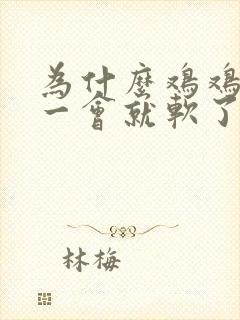 為什麼鸡鸡
一會就軟了
林梅